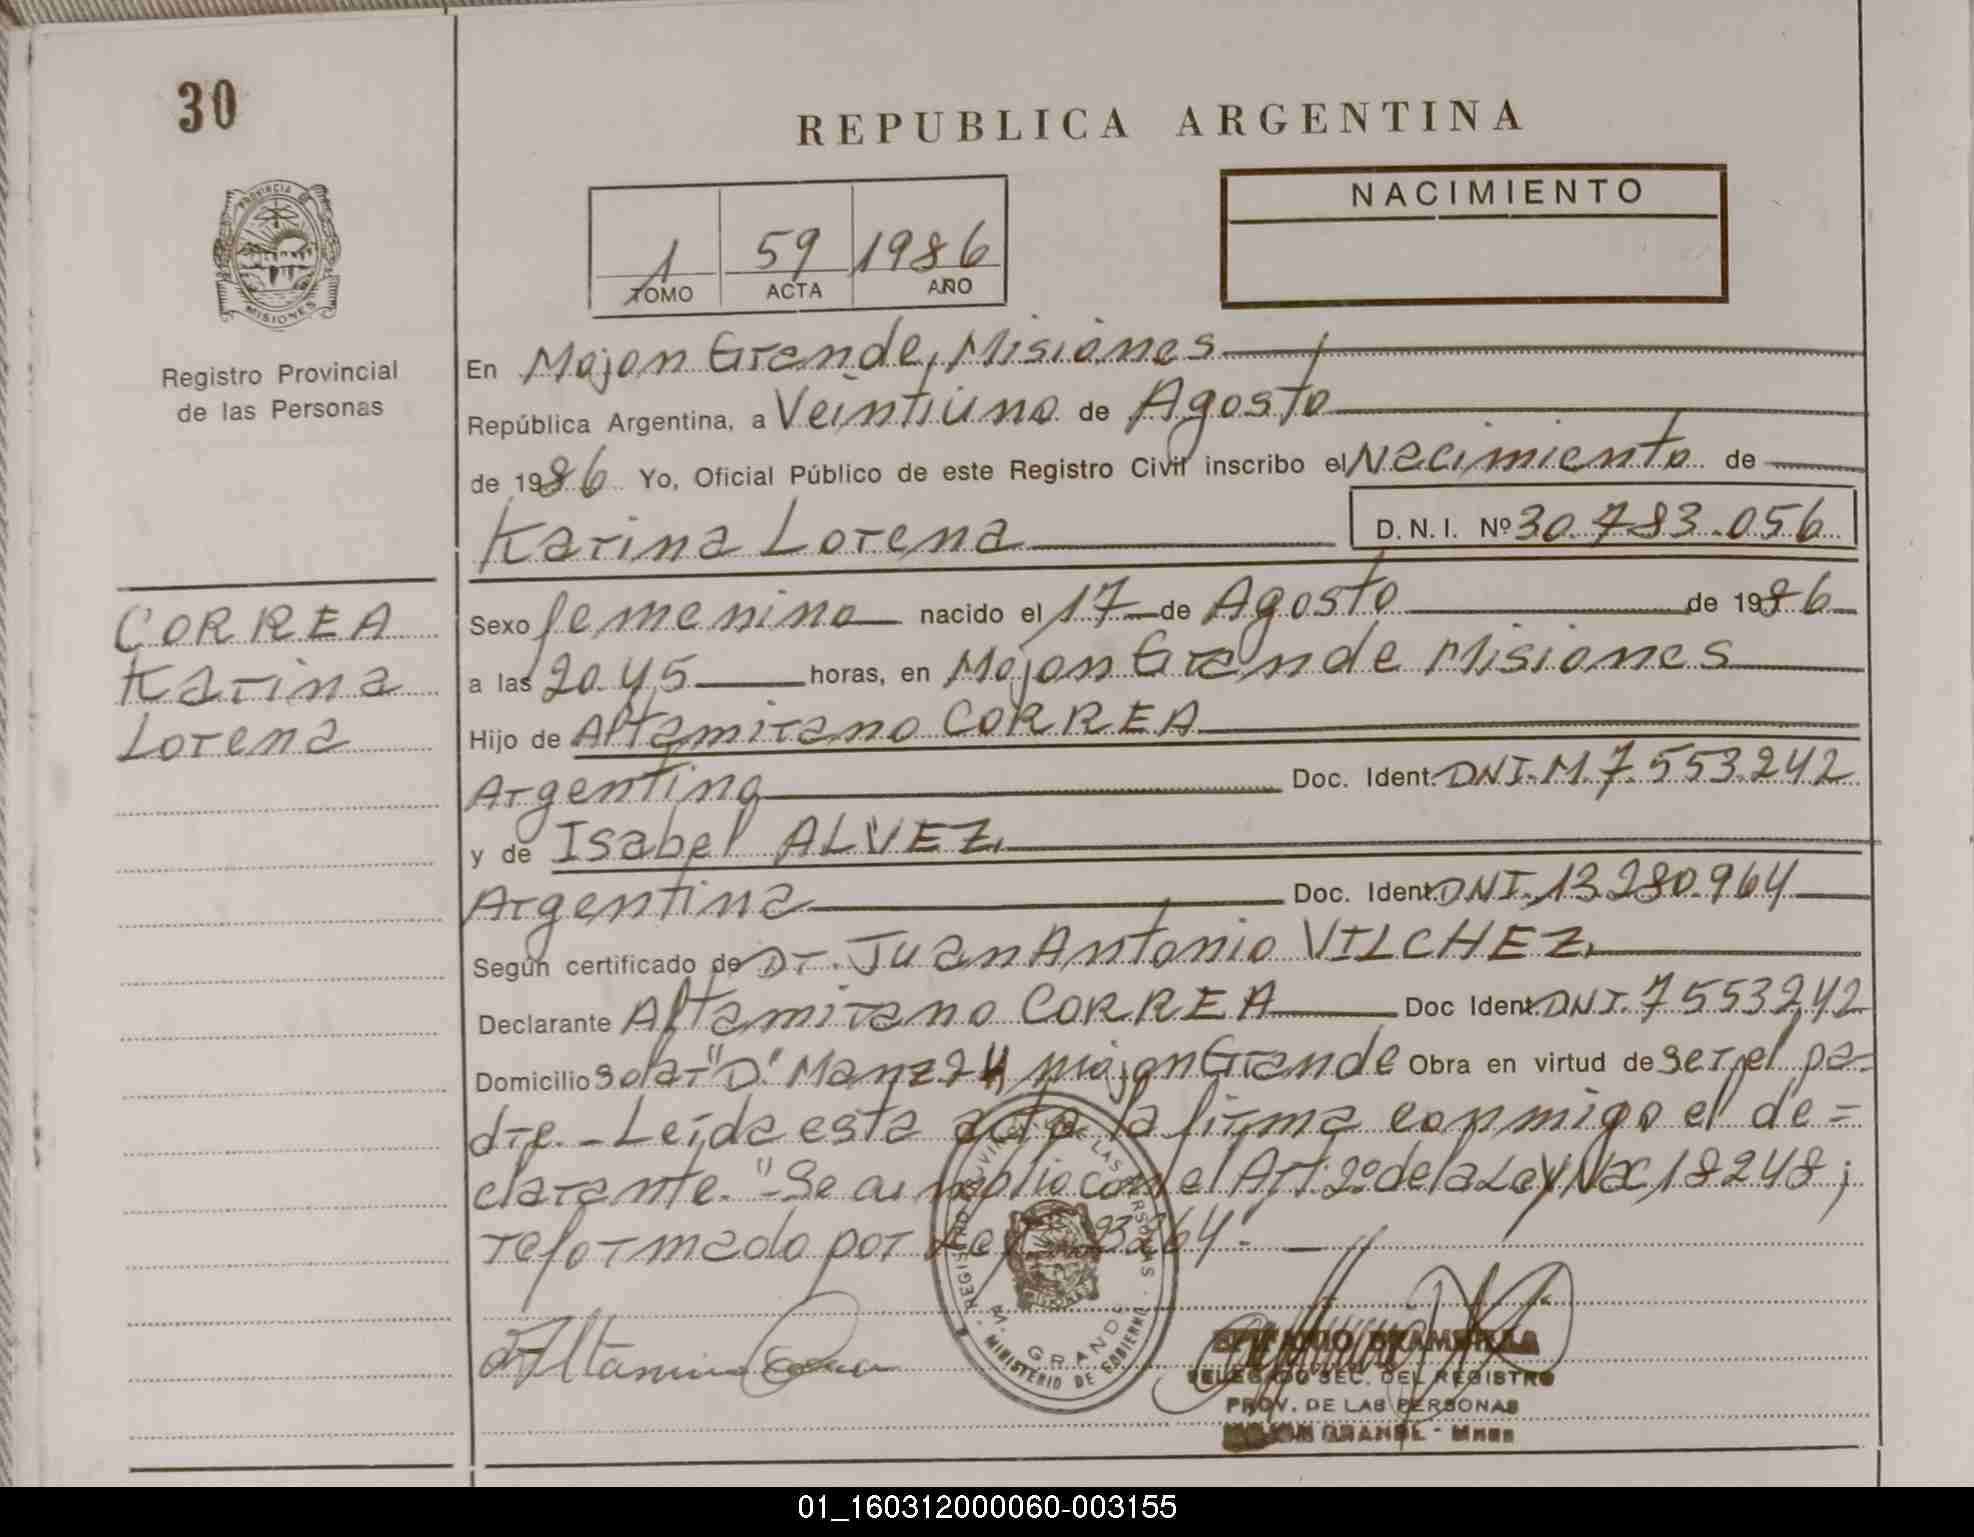 30
REPUBLICA ARGENTINA
PROVINCIA DE
MISIONES
Registro Provincial
de las Personas
1 59 1986
TOMO ACTA AÑO
NACIMIENTO
En Mojon Grande, Misiones
República Argentina, a Veintiuno de Agosto
de 1986 Yo, Oficial Público de este Registro Civil inscribo el Nacimiento de
Karina Lorena D.N.I. Nº 30.783.056
CORREA
Karina
Lorena
Sexo femenino nacido el 17 de Agosto de 1986
a las 20.45 horas, en Mojon Grande Misiones
Hijo de Altamirano CORREA
Argentino Doc. Ident. DNI.M.7.553.242
y de Isabel ALVEZ.
Argentina Doc. Ident. DNI.13.280.964
Según certificado de Dr. Juan Antonio VILCHEZ.
Declarante Altamirano CORREA Doc Ident. DNI.7553242
Domicilio Solar "D" Manz 24 mojon Grande Obra en virtud de ser el pa=
dre.-Leída esta acta la firma conmigo el de=
clarante."-Se cumplio con el Art:2º de la Ley Nac,18248;
reformado por Ley 23264.-
Altamirano Correa
REGISTRO PROVINCIAL DE LAS PERSONAS
M. GRANDE
MINISTERIO DE GOBIERNO
DELEGADO SEC. DEL REGISTRO
PROV. DE LAS PERSONAS
MOJON GRANDE - Mnes
01_160312000060-003155